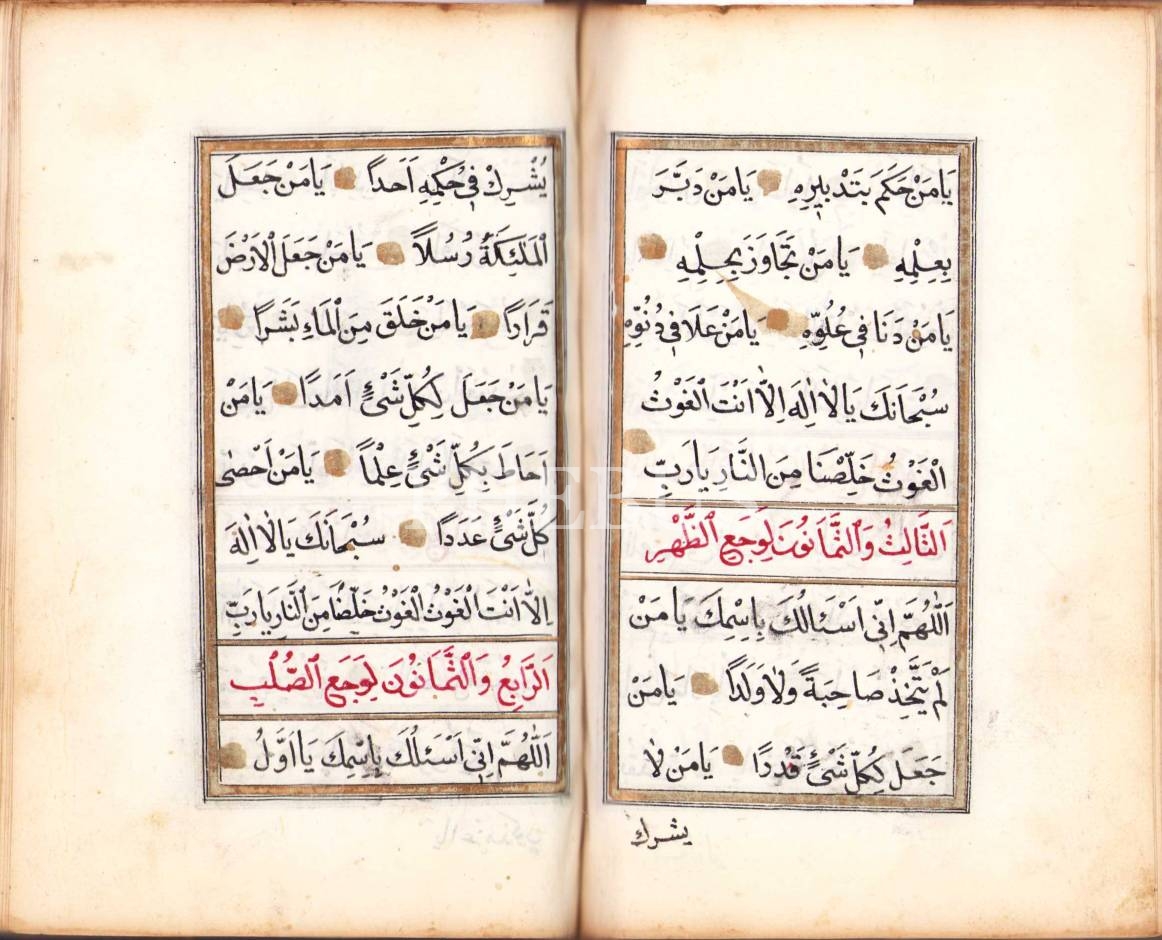 يَا مَنْ حَكَمَ بِتَدْبِيرِهِ يَا مَنْ دَبَّرَ
بِعِلْمِهِ يَا مَنْ تَجَاوَزَ بِحِلْمِهِ
يَا مَنْ دَنَا فِي عُلُوِّهِ يَا مَنْ عَلَا فِي دُنُوِّهِ
سُبْحَانَكَ يَا لَا اِلٰهَ اِلَّا اَنْتَ الْغَوْثُ
الْغَوْثُ خَلِّصْنَا مِنَ النَّارِ يَا رَبِّ
اَلثَّالِثُ وَالثَّمَانُونَ لِوَجَعِ الظَّهْرِ
اَللّٰهُمَّ اِنِّي اَسْئَالُكَ بِاسْمِكَ يَا مَنْ
لَمْ يَتَّخِذْ صَاحِبَةً وَلَا وَلَدًا يَا مَنْ
جَعَلَ لِكُلِّ شَيْءٍ قَدْرًا يَا مَنْ لَا
يشرك
يُشْرِكْ فِي حُكْمِهِ اَحَداً يَا مَنْ جَعَلَ
الْمَلٰئِكَةُ رُسُلاً يَا مَنْ جَعَلَ الْاَرْضَ
قَرَاراً يَا مَنْ خَلَقَ مِنَ الْمَاءِ بَشَراً
يَا مَنْ جَعَلَ لِكُلِّ شَيْءٍ اَمَدًا يَا مَنْ
اَحَاطَ بِكُلِّ شَيْءٍ عِلْماً يَا مَنْ اَحْصٰى
كُلَّ شَيْءٍ عَدَدًا سُبْحَانَكَ يَا لَا اِلٰهَ
اِلَّا اَنْتَ الْغَوْثُ الْغَوْثُ خَلِّصْنَا مِنَ النَّارِ يَا رَبِّ
اَلرَّابِعُ وَالثَّمَانُونَ لِوَجَعِ الصُّلْبِ
اَللّٰهُمَّ اِنِّي اَسْئَلُكَ بِاسْمِكَ يَا اَوَّلُ